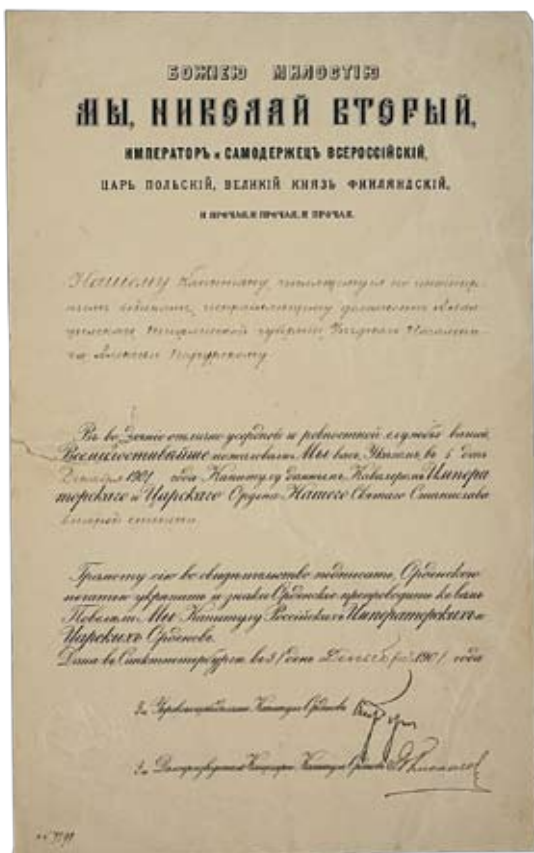 БОЖІЕЮ МИЛОСТІЮ
МЫ, НИКОЛАЙ ВТОРЫЙ,
ИМПЕРАТОРЪ и САМОДЕРЖЕЦЪ ВСЕРОССІЙСКІЙ,
ЦАРЬ ПОЛЬСКІЙ, ВЕЛИКІЙ КНЯЗЬ ФИНЛЯНДСКІЙ,
И ПРОЧАЯ, И ПРОЧАЯ, И ПРОЧАЯ.
Нашему Капитану, числящемуся по
исправляющему должность
губерніи, Уѣзднаго Начальни-
ка, Алексѣю
Въ воздаяніе отлично усердной и ревностной службы вашей,
Всемилостивѣйше пожаловали Мы васъ, Указомъ, въ 6 день
Декабря 1901 года Капитулу даннымъ, Кавалеромъ Импера
торскаго и Царскаго Ордена Нашего Святаго Станислава
второй степени
Грамоту сію во свидѣтельство подписать, Орденскою
печатью укрѣпить и знаки Орденскіе препроводить къ вамъ
Повелѣли Мы Капитулу Россійскихъ Императорскихъ и
Царскихъ Орденовъ.
Дана въ Санктпетербургѣ въ 31 день Декабря 1901 года
Капитула Орденовъ
Капитула Орденовъ